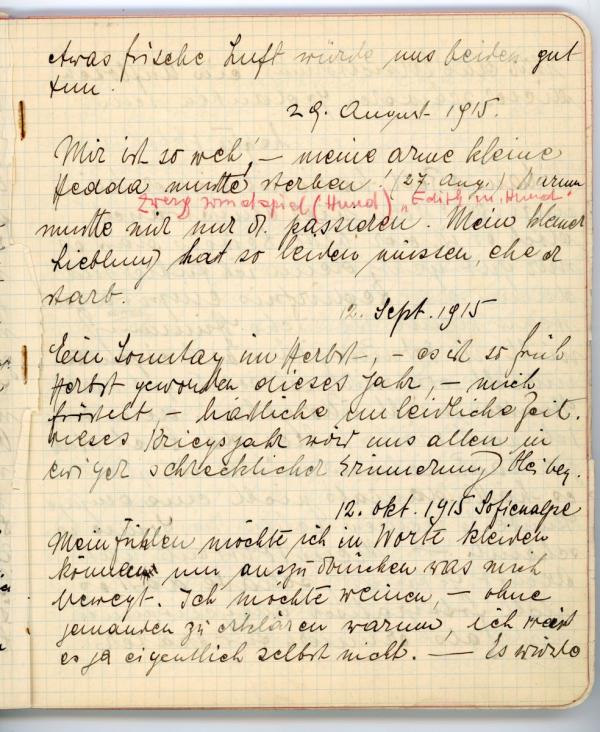 etwas frische Luft würde uns beiden gut
tun.
29. August 1915.
Mir ist so weh! – meine arme kleine
Hedda mußte sterben! (27 Aug.) Warum
Zwerg windspiel (Hund) "Edith m. Hund"
mußte mir nur d. passieren. Mein kleiner
Liebling hat so leiden müssen, ehe er
starb.
12. Sept. 1915
Ein Sonntag im Herbst, – es ist so früh
Herbst geworden dieses Jahr, – mich
fröstelt – häßliche unleidliche Zeit.
Dieses Kriegsjahr wird uns allen in
ewiger schrecklicher Erinnerung bleiben.
12. Okt. 1915 Sofienalpe
Mein Fühlen möchte ich in Worte kleiden
können um auszudrücken was mich
bewegt. Ich möchte weinen, – ohne
jemanden zu erklären warum, ich weiß
es ja eigentlich selbst nicht. — Es würde